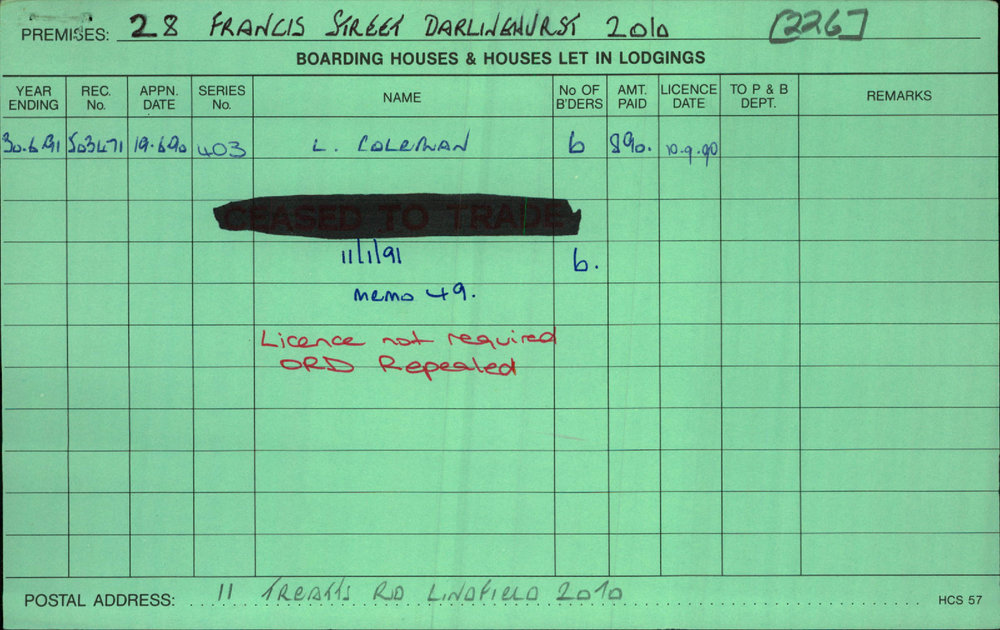 PREMISES: 28 FRANCIS STREET DARLINGHURST 2010 [226]
BOARDING HOUSES & HOUSES LET IN LODGINGS
YEAR ENDING REC. No. APPN. DATE SERIES No. NAME No OF B'DERS AMT. PAID LICENCE DATE TO P & B DEPT. REMARKS
30.6.91 503471 19.6.90 403 L. COLEMAN 6 890. 10.9.90
CEASED TO TRADE
11/1/91 6.
memo 49.
Licence not required
ORD Repealed
POSTAL ADDRESS: 11 TREATTS RD LINDFIELD 2070
HCS 57